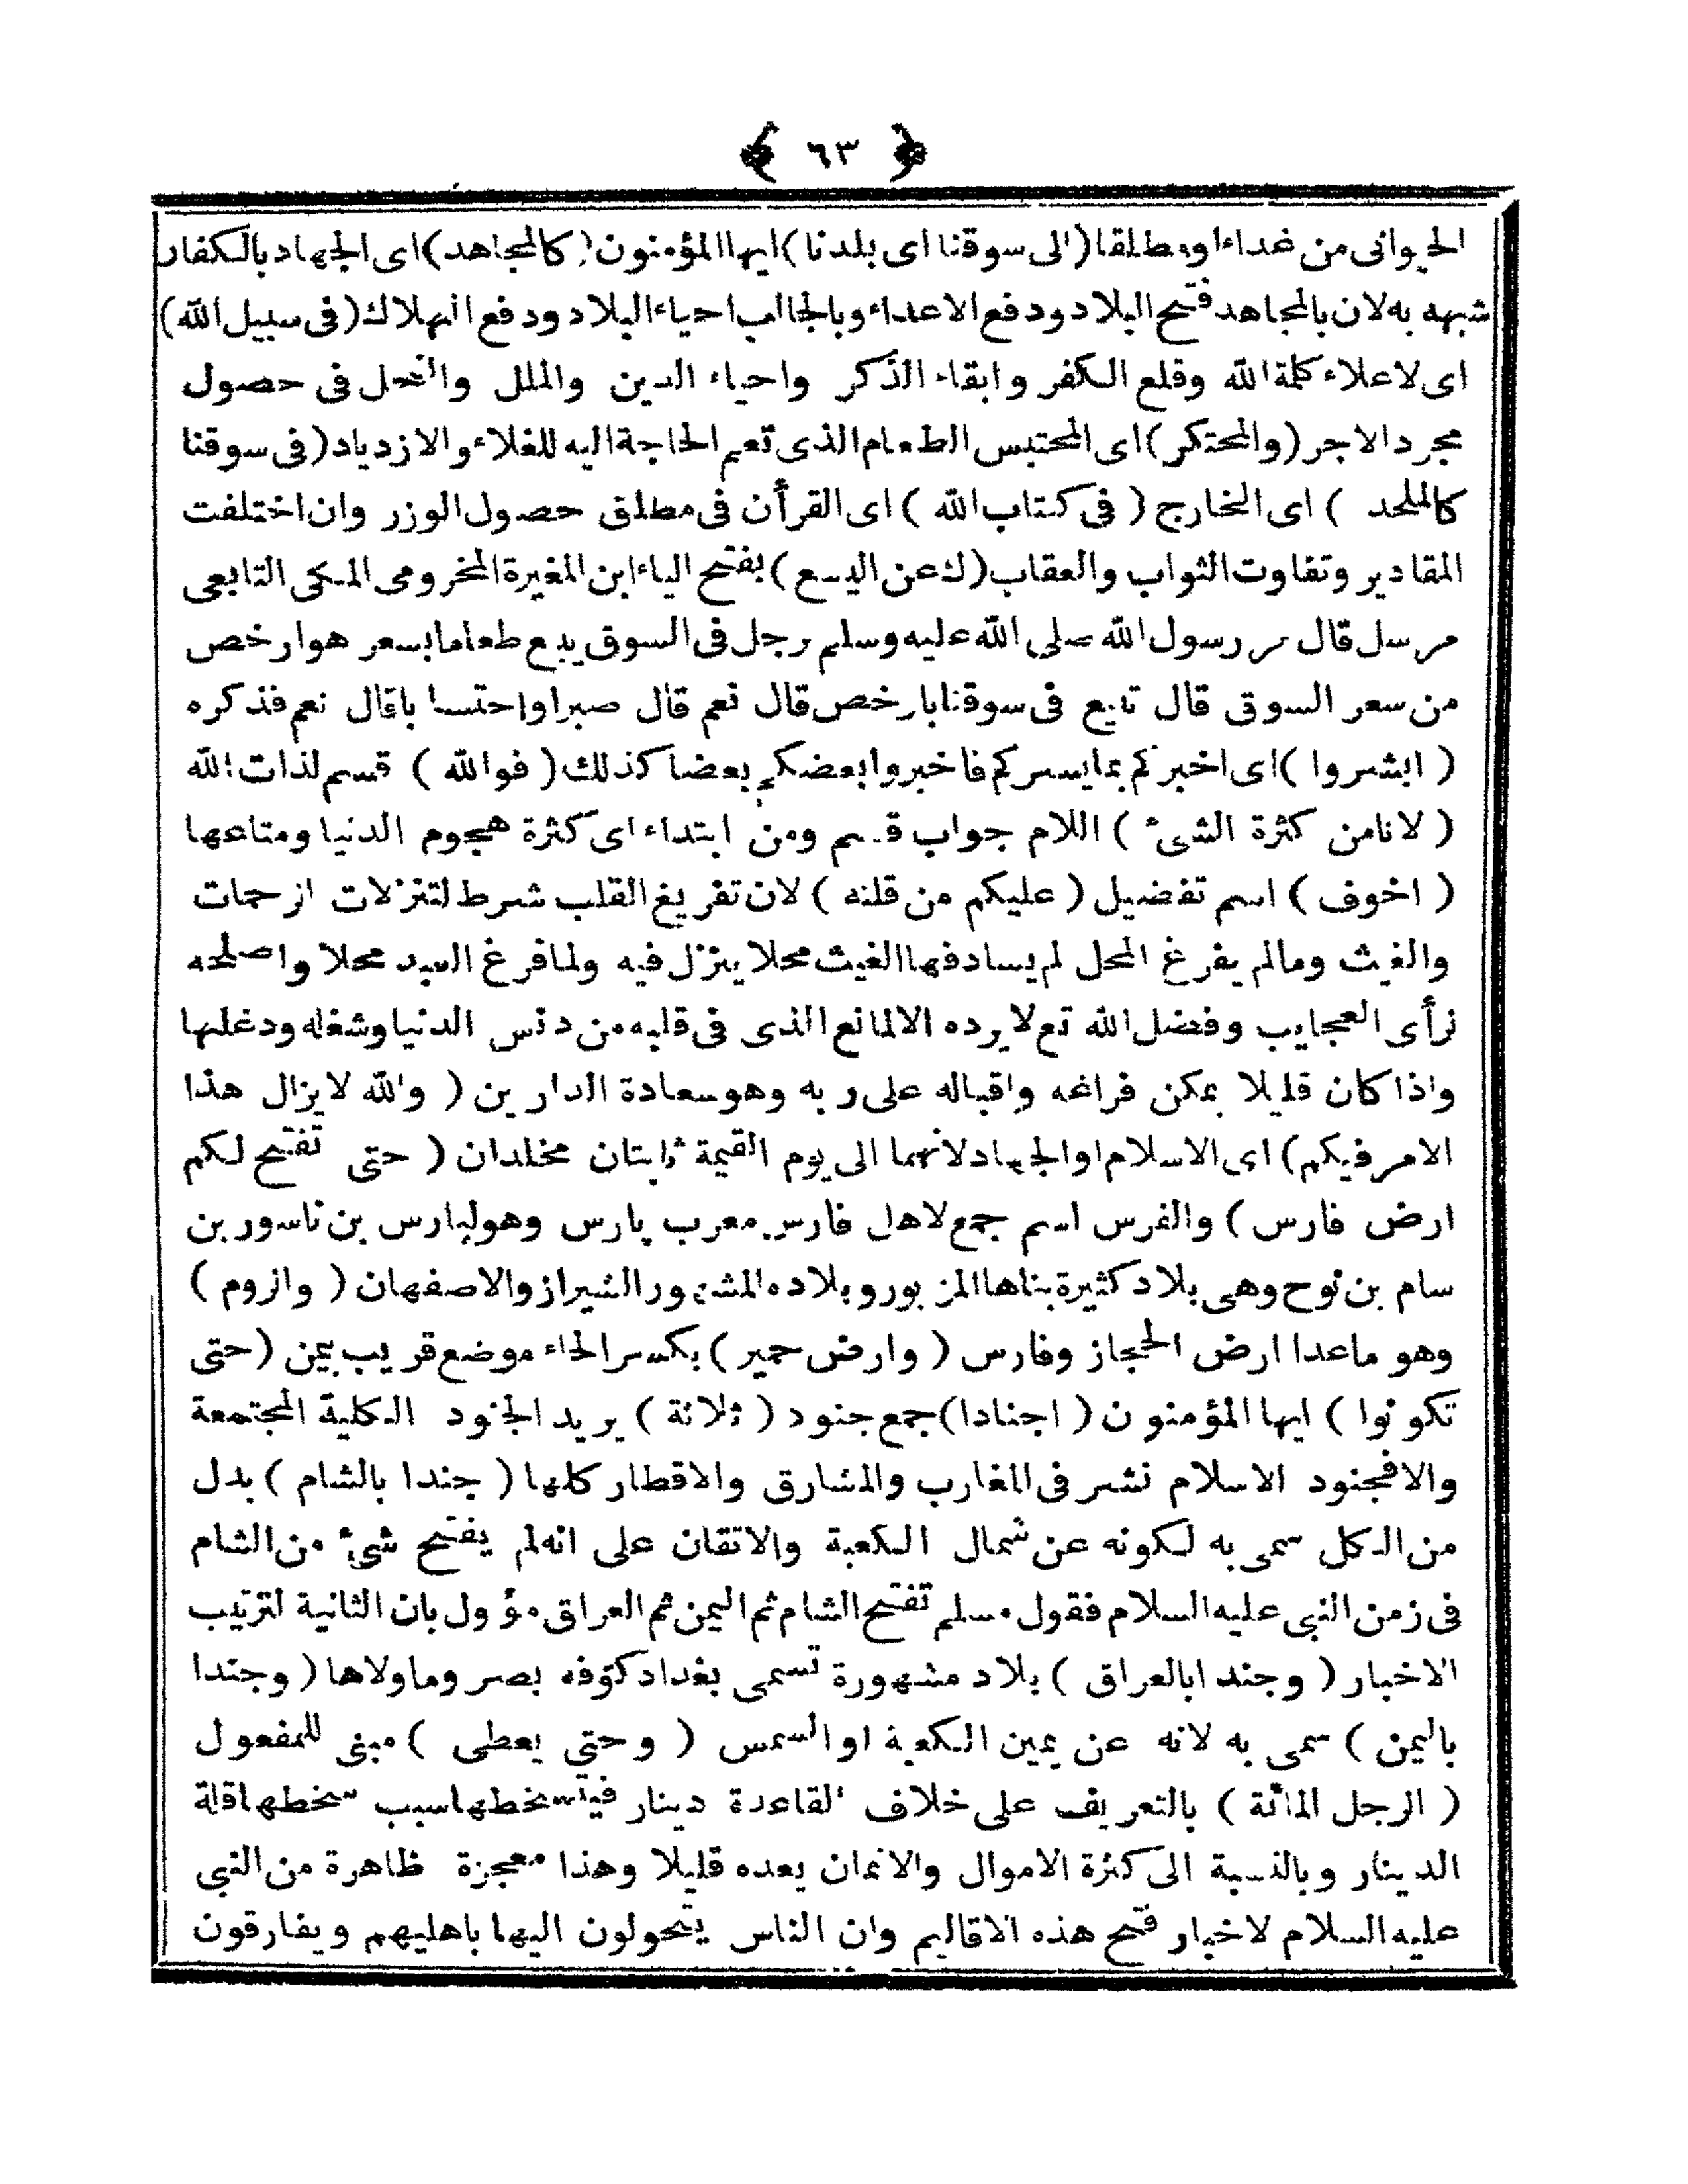 ﴿ ٦٣ ﴾
الحيوانى من غداء او مطلقا (الى سوقنا اى بلدنا) ايها المؤمنون (كالمجاهد) اى الجهاد بالكفار
شبهه به لان بالمجاهد فتح البلاد ودفع الاعداء وبالجالب احياء البلاد ودفع الهلاك (فى سبيل الله)
اى لاعلاء كلمة الله وقلع الكفر وابقاء الذكر واحياء الدين والملل والنحل فى حصول
مجرد الاجر (والمحتكر) اى المحتبس الطعام الذى تعم الحاجة اليه للغلاء والازدياد (فى سوقنا
كالملحد ) اى الخارج ( فى كتاب الله ) اى القرأن فى مطلق حصول الوزر وان اختلفت
المقادير وتفاوت الثواب والعقاب (ك عن اليسع ) بفتح الياء ابن المغيرة المخرومى المكى التابعى
مرسل قال مر رسول الله صلى الله عليه وسلم برجل فى السوق يبيع طعاما بسعر هو ارخص
من سعر السوق قال تابيع فى سوقنا بارخص قال نعم قال صبرا واحتسابا قال نعم فذكره
( ابشروا ) اى اخبركم بما يسركم فاخبروا بعضكم بعضا كذلك ( فوالله ) قسم لذات الله
( لانا من كثرة الشىء ) اللام جواب قسم ومن ابتداء اى كثرة هجوم الدنيا ومتاعها
( اخوف ) اسم تفضيل ( عليكم من قلته ) لان تفريغ القلب شرط لتنزلات الرحمات
والغيث ومالم يفرغ المحل لم يسادفها الغيث محلا ينزل فيه ولما فرغ العبد محلا واصلحه
لرأى العجايب وفضل الله تع لا يرده الا المانع الذى فى قلبه من دنس الدنيا وشغله ودغلها
واذا كان قليلا يمكن فراغه واقباله على ربه وهو سعادة الدارين ( والله لا يزال هذا
الامر فيكم ) اى الاسلام او الجهاد لانهما الى يوم القيمة ثابتان مخلدان ( حتى تفتح لكم
ارض فارس ) والفرس اسم جمع لاهل فارس معرب پارس وهو لپارس بن ناسور بن
سام بن نوح وهى بلاد كثيرة بناها المزبور وبلاده المشهور الشيراز والاصفهان ( والروم )
وهو ماعدا ارض الحجاز وفارس ( وارض حمير ) بكسر الحاء موضع قريب يمن (حتى
تكونوا ) ايها المؤمنون ( اجنادا ) جمع جنود ( ثلاثة ) يريد الجنود الكلية المجتمعة
والا فجنود الاسلام نشر فى المغارب والمشارق والاقطار كلها ( جندا بالشام ) بدل
من الكل سمى به لكونه عن شمال الكعبة والاتقان على انه لم يفتح شىء من الشام
فى زمن النبى عليه السلام فقول مسلم تفتح الشام ثم اليمن ثم العراق مؤول بان الثانية لترتيب
الاخبار ( وجندا بالعراق ) بلاد مشهورة تسمى بغداد كوفه بصر وماولاها ( وجندا
باليمن ) سمى به لانه عن يمين الكعبة او السمس ( وحتى يعطى ) مبنى للمفعول
( الرجل المائة ) بالتعريف على خلاف القاعدة دينار فيتسخطها سبب سخطها قلة
الدينار وبالنسبة الى كثرة الاموال والاثمان يعده قليلا وهذا معجزة ظاهرة من النبى
عليه السلام لاخبار فتح هذه الاقاليم وان الناس يتحولون اليها باهليهم ويفارقون